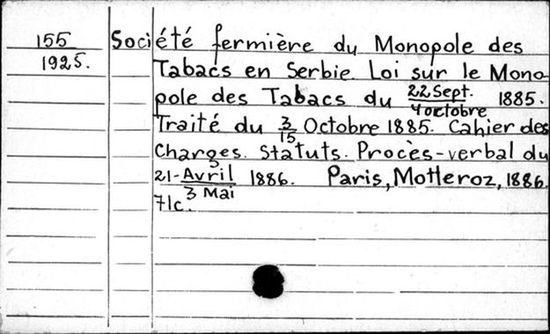 155 Société fermière du Monopole des
1925. Tabacs en Serbie. Loi sur le Mono-
pole des Tabacs du 22 Sept. / 4 octobre 1885.
Traité du 3/15 Octobre 1885. Cahier des
Charges. Statuts. Procès-verbal du
21-Avril / 3 Mai 1886. Paris, Motteroz, 1886.
71c.